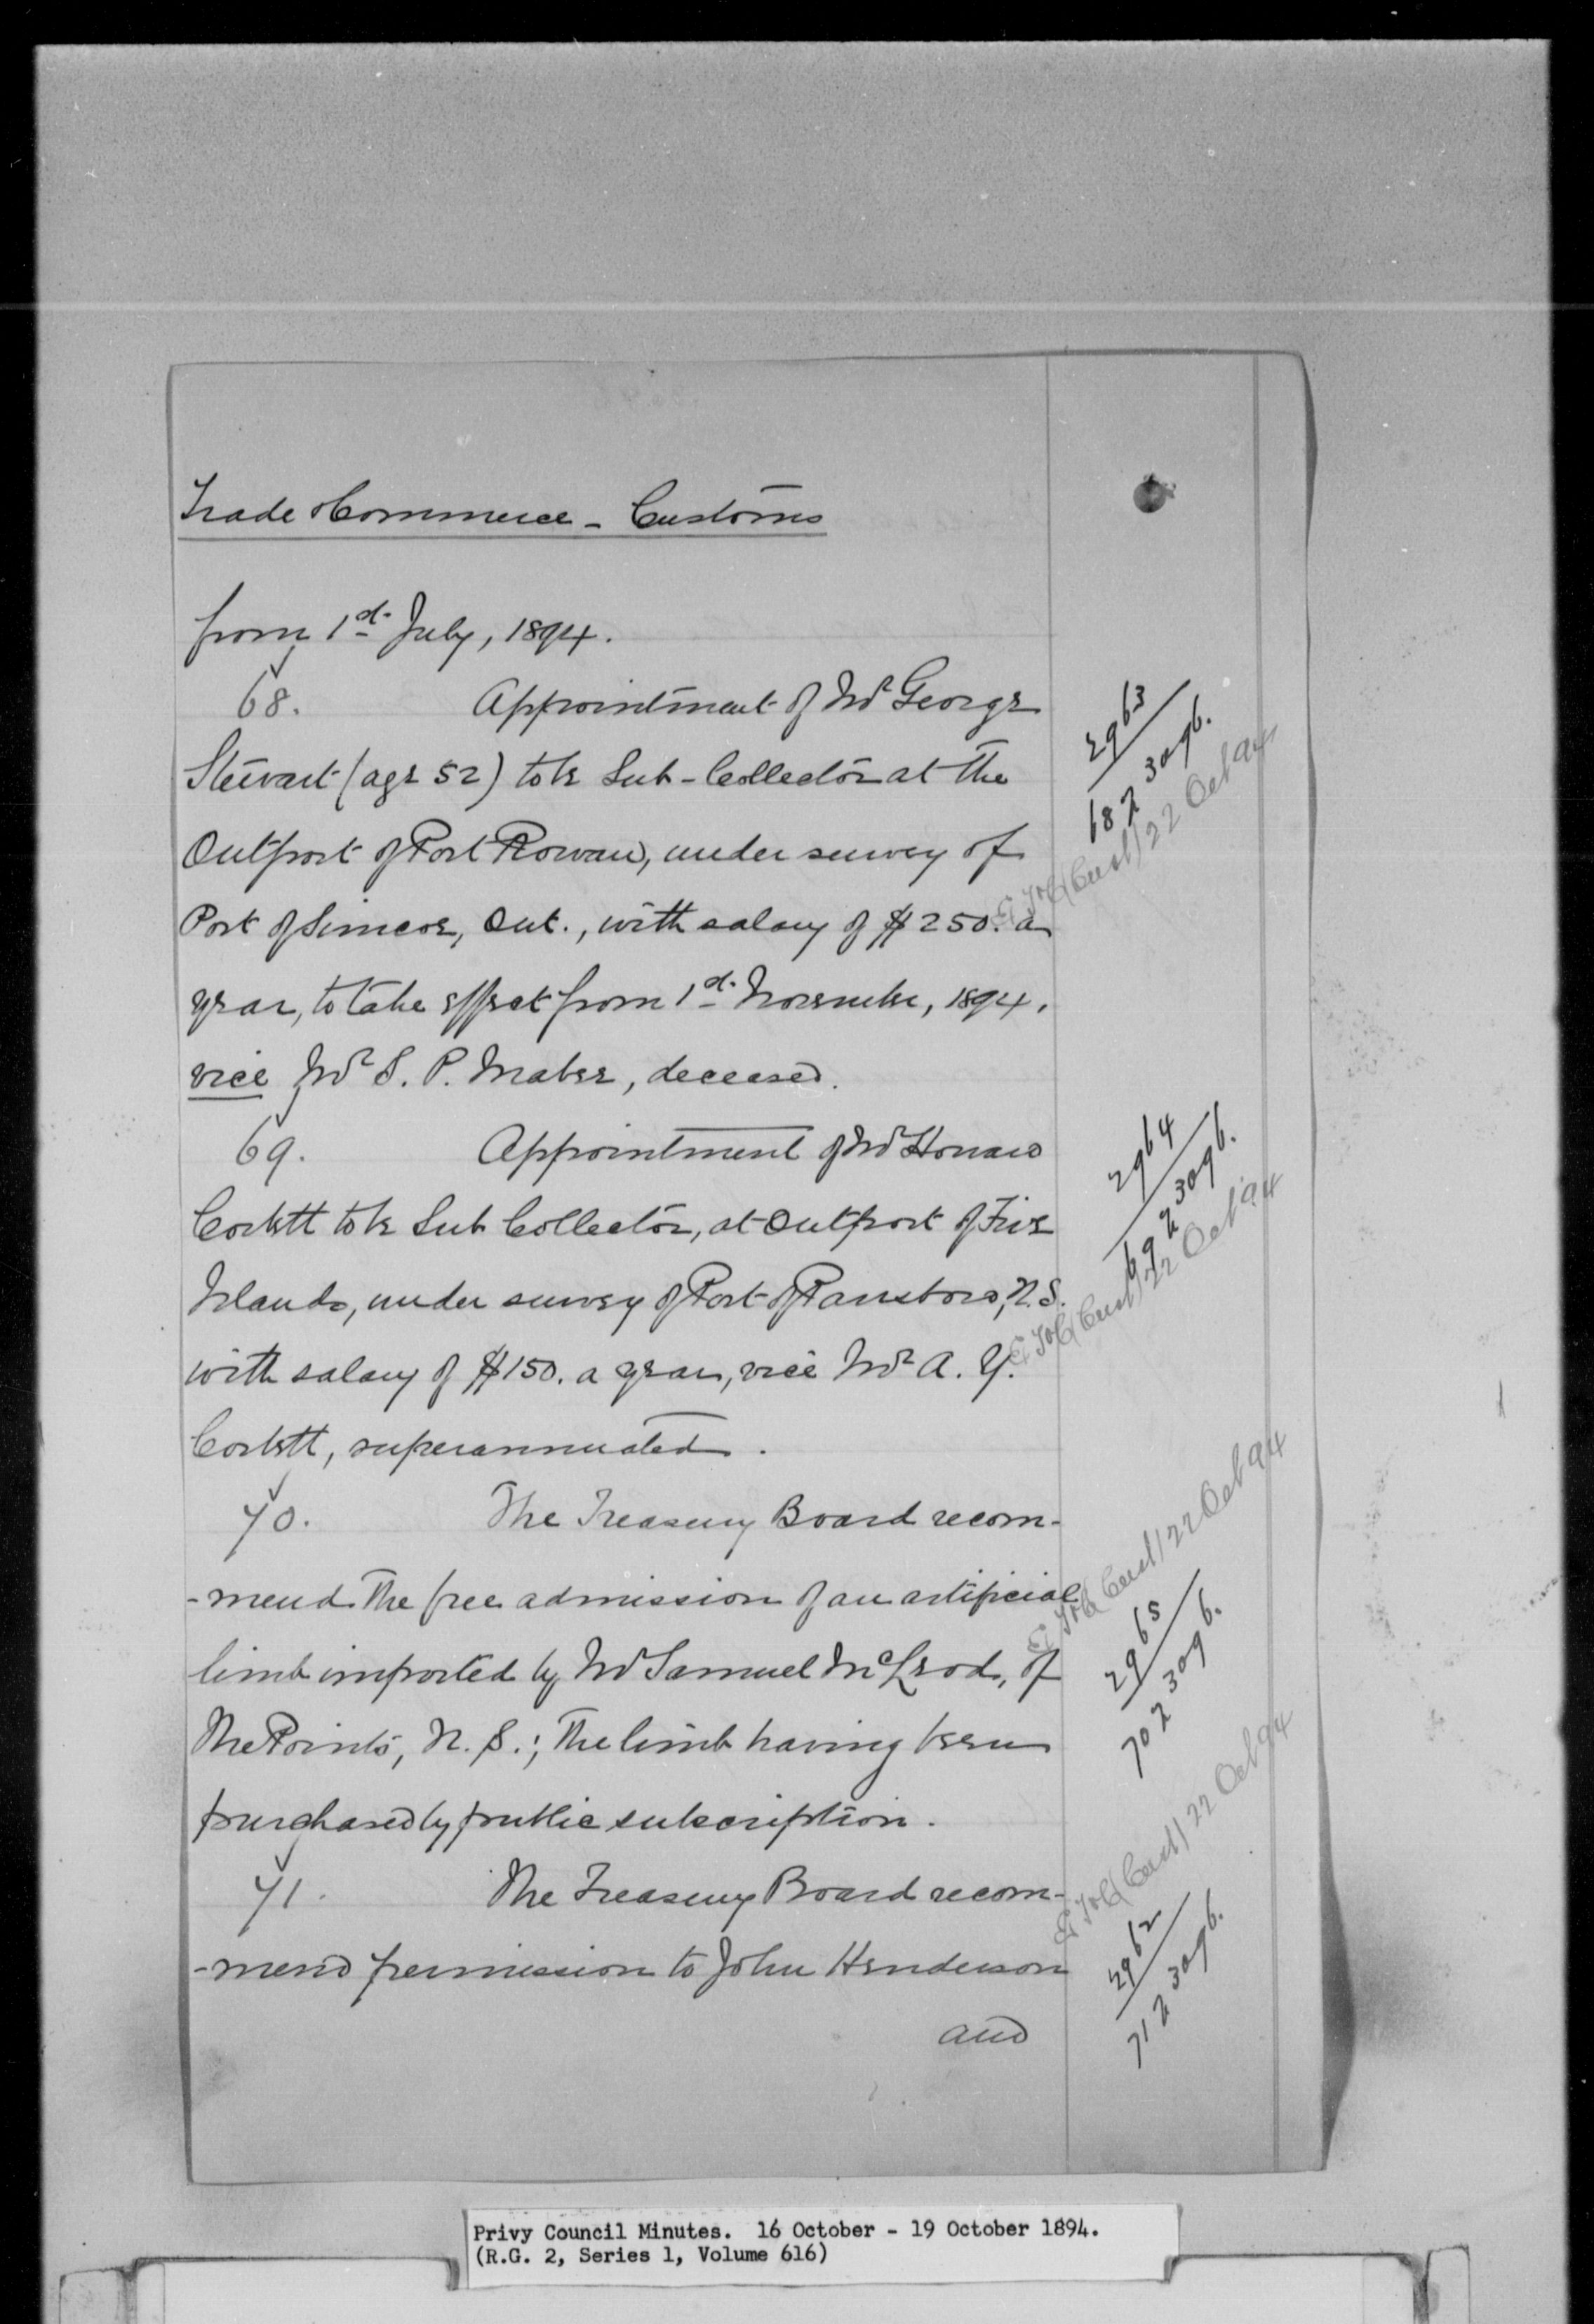 Trade & Commerce - Customs
from 1st July, 1894.
68. Appointment of Mr George
Stewart (age 52) to be Sub-Collector at the
Outport of Port Rowan, under survey of
Port of Simcoe, Ont., with salary of $250. a
year, to take effect from 1st November, 1894.
vice Mr S. P. Mabee, deceased.
69. Appointment of Mr Howard
Corbett to be Sub Collector, at Outport of Five
Islands, under survey of Port of Parrsboro, N.S.
with salary of $150. a year, vice Mr A. Y.
Corbett, superannuated.
70. The Treasury Board recom-
-mend the free admission of an artificial
limb imported by Mr Samuel McLeod, of
The Points, N.S.; the limb having been
purchased by public subscription.
71. The Treasury Board recom-
-mend permission to John Henderson
and
2963
68 2 3096.
22 Oct 94
2964
69 2 3096.
22 Oct 94
22 Oct 94
2965
70 2 3096.
22 Oct 94
2962
71 2 3096.
Privy Council Minutes. 16 October - 19 October 1894.
(R.G. 2, Series 1, Volume 616)